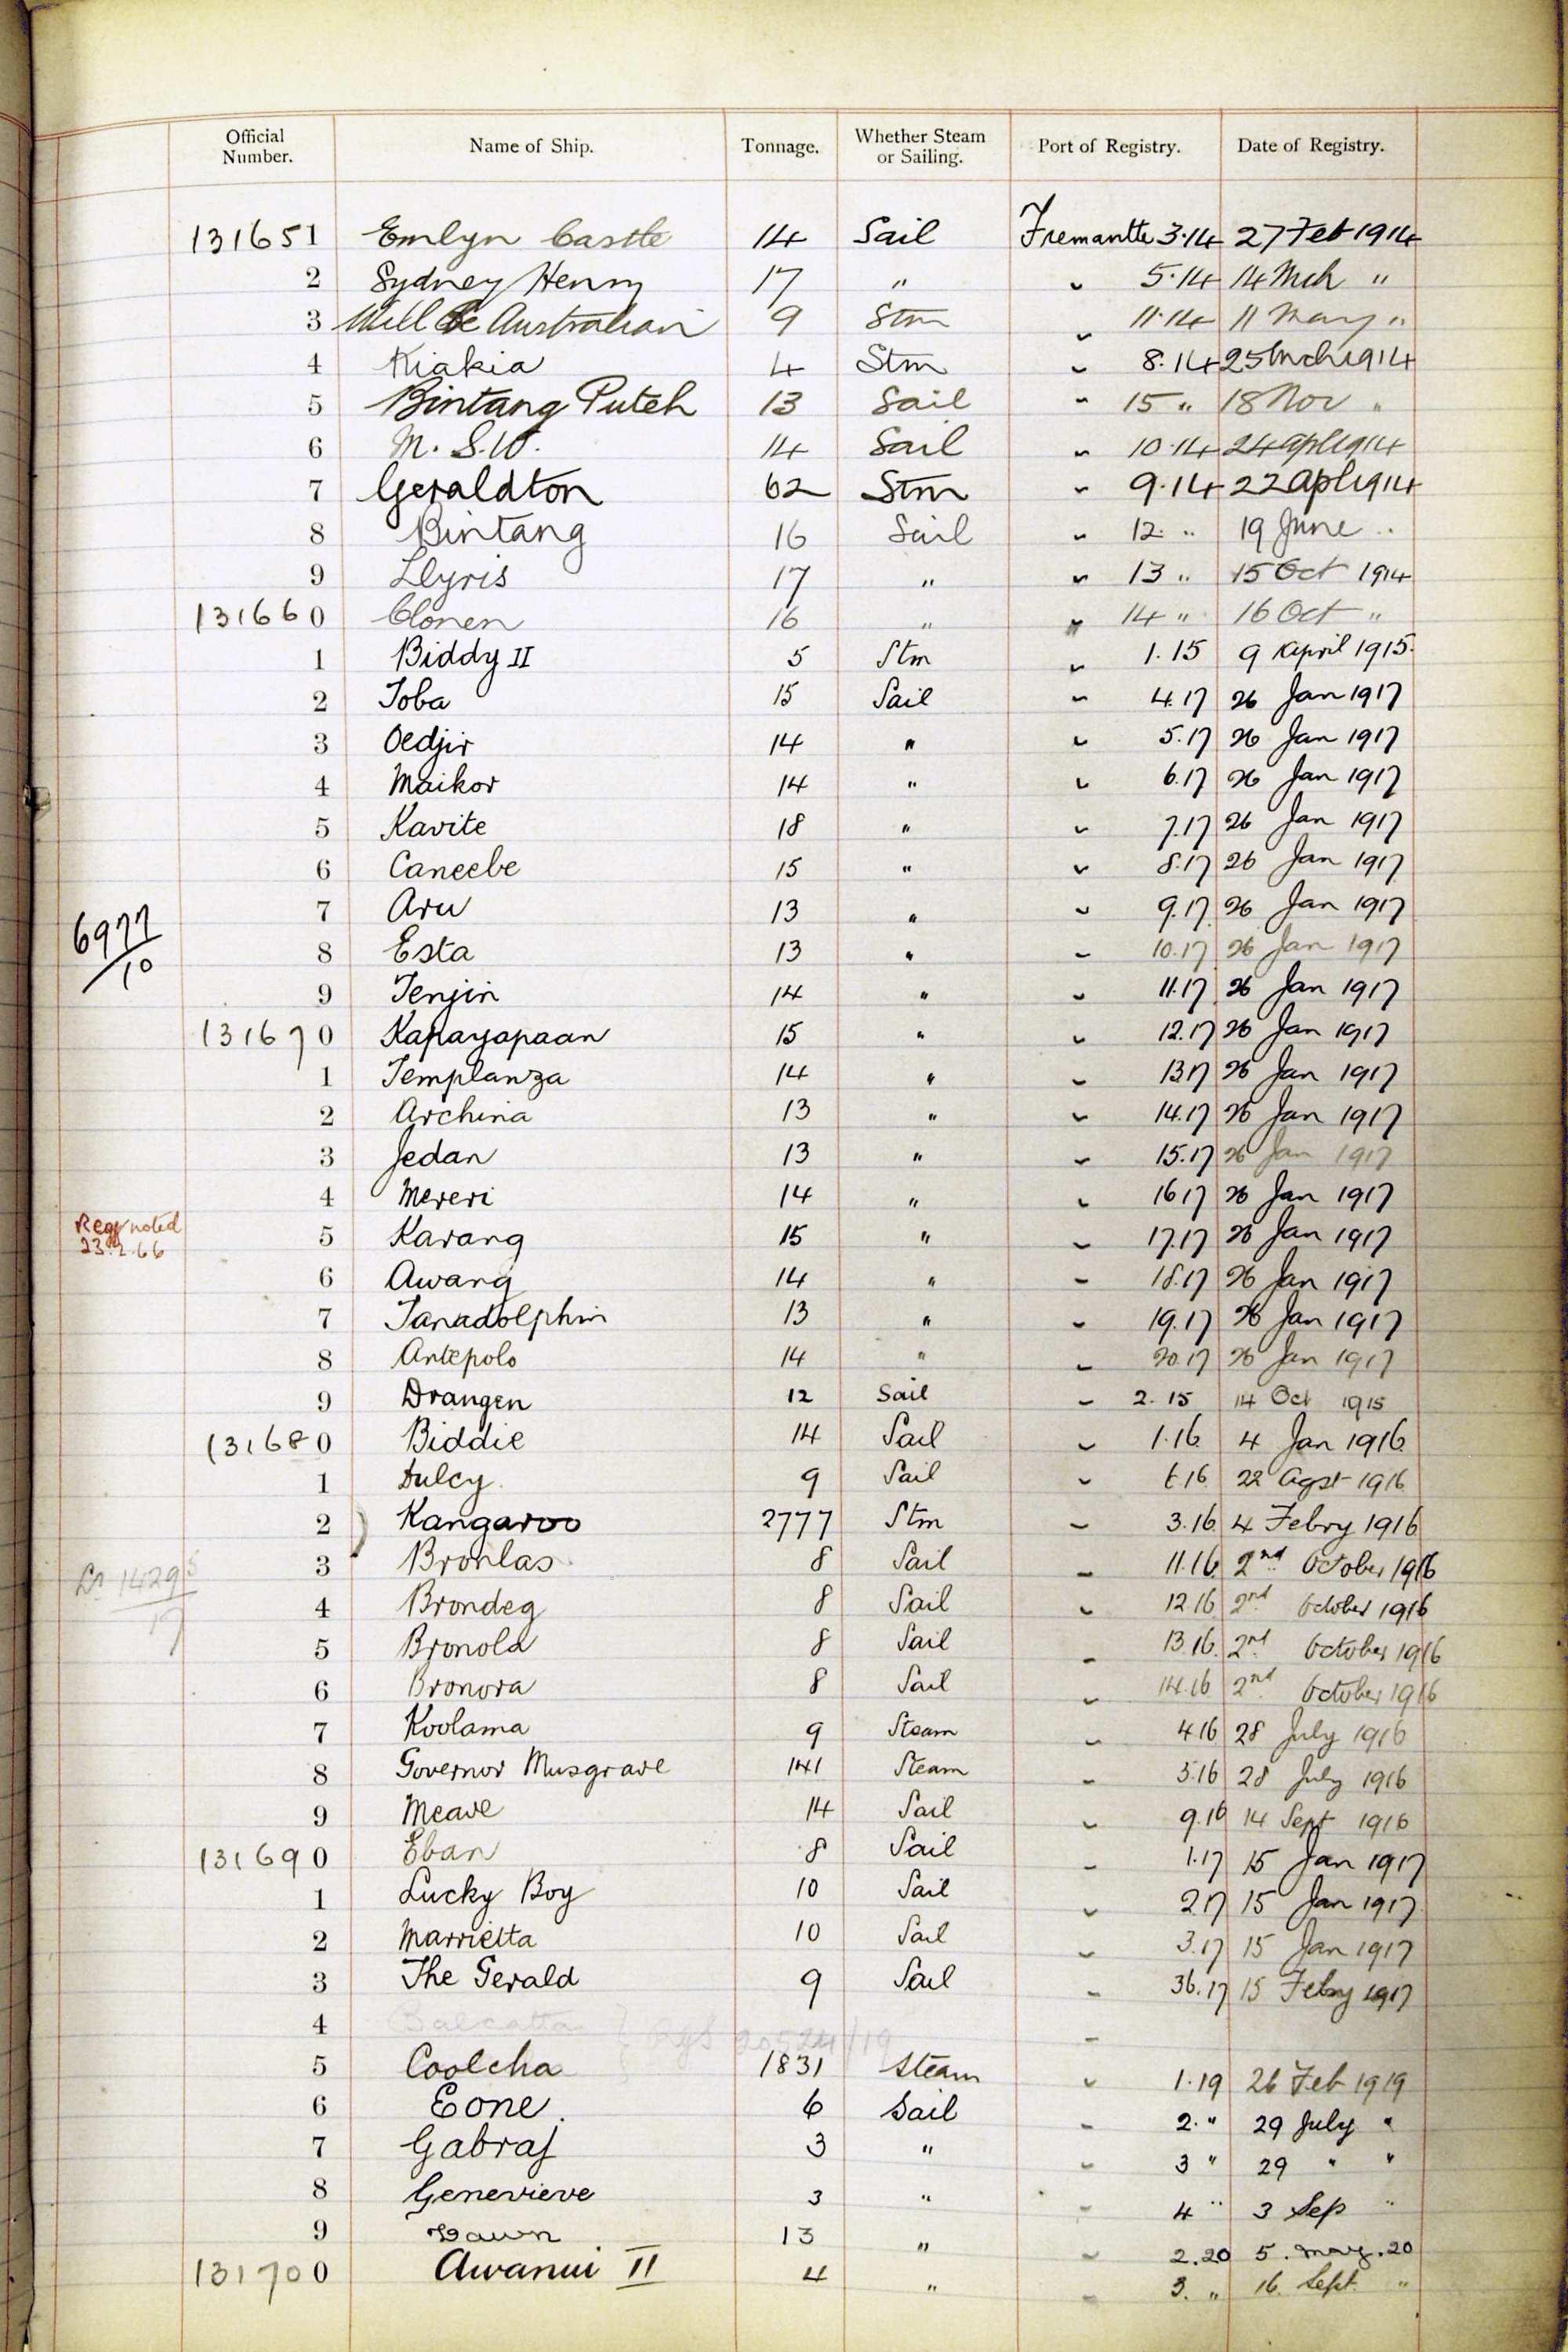 Official Number. Name of Ship. Tonnage. Whether Steam or Sailing. Port of Registry. Date of Registry.
131651 Emlyn Castle 14 Sail Fremantle 3.14 27 Feb 1914
2 Sydney Henry 17 " " 5.14 14 Mch "
3 Australian 9 Stm " 11.14 11 May "
4 Kiakia 4 Stm " 8.14 25 Mch 1914
5 Bintang Puteh 13 Sail " 15 " 18 Nov "
6 M. S. W. 14 Sail " 10.14 24 Apl 1914
7 Geraldton 62 Stm " 9.14 22 Apl 1914
8 Bintang 16 Sail " 12. " 19 June "
9 Llyris 17 " " 13 " 15 Oct 1914
131660 Clonen 16 " " 14 " 16 Oct "
1 Biddy II 5 Stm " 1.15 9 April 1915.
2 Toba 15 Sail " 4.17 26 Jan 1917
3 Oedjir 14 " " 5.17 26 Jan 1917
4 Maikor 14 " " 6.17 26 Jan 1917
5 Kavite 18 " " 7.17 26 Jan 1917
6 Caneebe 15 " " 8.17 26 Jan 1917
7 Aru 13 " " 9.17 26 Jan 1917
6977/10
8 Esta 13 " " 10.17 26 Jan 1917
9 Tenjin 14 " " 11.17 26 Jan 1917
131670 Kapayapaan 15 " " 12.17 26 Jan 1917
1 Templanza 14 " " 13.17 26 Jan 1917
2 Archina 13 " " 14.17 26 Jan 1917
3 Jedan 13 " " 15.17 26 Jan 1917
4 Mereri 14 " " 16.17 26 Jan 1917
Regy noted
23.2.66
5 Karang 15 " " 17.17 26 Jan 1917
6 Awang 14 " " 18.17 26 Jan 1917
7 Tanadolphin 13 " " 19.17 26 Jan 1917
8 Antepolo 14 " " 20.17 26 Jan 1917
9 Drangen 12 Sail " 2.15 14 Oct 1915
131680 Biddie 14 Sail " 1.16 4 Jan 1916
1 Dulcy 9 Sail " 6.16 22 Agst 1916
2 Kangaroo 2777 Stm " 3.16 4 Febry 1916
3 Bronlas 8 Sail " 11.16 2nd October 1916
4 Brondeg 8 Sail " 12.16 2nd October 1916
5 Bronola 8 Sail " 13.16 2nd October 1916
6 Bronora 8 Sail " 14.16 2nd October 1916
7 Koolama 9 Steam " 4.16 28 July 1916
8 Governor Musgrave 141 Steam " 5.16 28 July 1916
9 Meave 14 Sail " 9.16 14 Sept 1916
131690 Eban 8 Sail " 1.17 15 Jan 1917
1 Lucky Boy 10 Sail " 2.17 15 Jan 1917
2 Marrietta 10 Sail " 3.17 15 Jan 1917
3 The Gerald 9 Sail " 36.17 15 Febry 1917
4 Balcatta "
5 Coolcha 1831 Steam " 1.19 26 Feb 1919
6 Eone. 6 Sail " 2. " 29 July "
7 Gabraj 3 " " 3 " 29 " "
8 Genevieve 3 " " 4 " 3 Sep "
9 Dawn 13 " " 2.20 5. May. 20
131700 Awanui II 4 " " 3. " 16. Sept. "